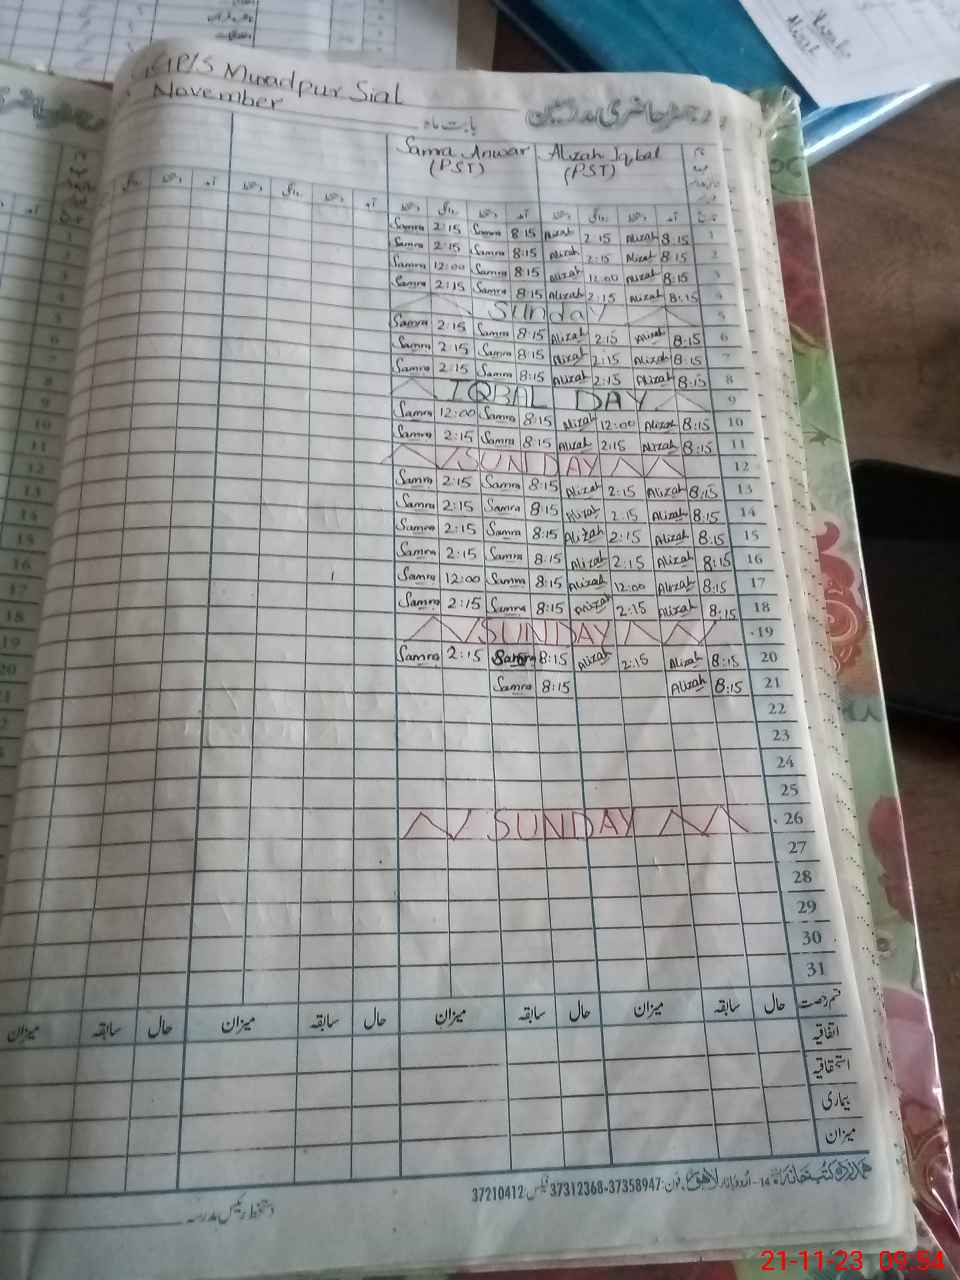 GGP/S Muradpur Sial
November
رجسٹر حاضری مدرسین
بابت ماہ
Samra Anwar (PST) Alizah Iqbal (PST)
Samra 2:15 Samra 8:15 Alizah 2:15 Alizah 8:15 1
Samra 2:15 Samra 8:15 Alizah 2:15 Alizah 8:15 2
Samra 12:00 Samra 8:15 Alizah 12:00 Alizah 8:15 3
Samra 2:15 Samra 8:15 Alizah 2:15 Alizah 8:15 4
Sunday 5
Samra 2:15 Samra 8:15 Alizah 2:15 Alizah 8:15 6
Samra 2:15 Samra 8:15 Alizah 2:15 Alizah 8:15 7
Samra 2:15 Samra 8:15 Alizah 2:15 Alizah 8:15 8
IQBAL DAY 9
Samra 12:00 Samra 8:15 Alizah 12:00 Alizah 8:15 10
Samra 2:15 Samra 8:15 Alizah 2:15 Alizah 8:15 11
SUNDAY 12
Samra 2:15 Samra 8:15 Alizah 2:15 Alizah 8:15 13
Samra 2:15 Samra 8:15 Alizah 2:15 Alizah 8:15 14
Samra 2:15 Samra 8:15 Alizah 2:15 Alizah 8:15 15
Samra 2:15 Samra 8:15 Alizah 2:15 Alizah 8:15 16
Samra 12:00 Samra 8:15 Alizah 12:00 Alizah 8:15 17
Samra 2:15 Samra 8:15 Alizah 2:15 Alizah 8:15 18
SUNDAY 19
Samra 2:15 Samra 8:15 Alizah 2:15 Alizah 8:15 20
Samra 8:15 Alizah 8:15 21
22
23
24
25
SUNDAY 26
27
28
29
30
31
قسم رخصت حال سابقہ میزان حال سابقہ میزان حال سابقہ میزان حال سابقہ میزان
اتفاقیہ
استحقاقیہ
بیماری
میزان
ہمدرد کتب خانہ 14-اردو بازار لاہور۔ فون: 37358947-37312368 فیکس: 37210412
دستخط رئیس مدرسہ
21-11-23 09:54